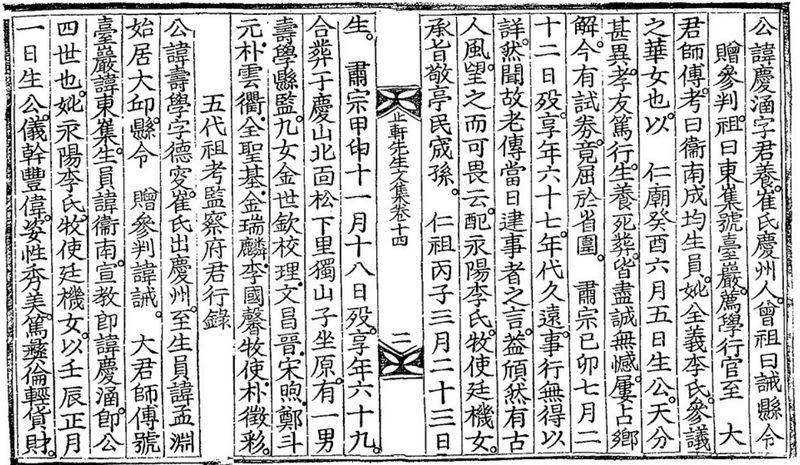 公諱慶涵字君養。崔氏慶州人。曾祖曰誡縣令
贈參判。祖曰東㠍。號臺巖。薦學行官至 大
君師傅。考曰衞南成均生員。妣全義李氏。參議
之華女也。以 仁廟癸酉六月五日生公。天分
甚異。孝友篤行。生養死葬。皆盡誠無憾。屢占鄉
解。今有試劵。竟屈於省圍。 肅宗己卯七月二
十二日歿。享年六十七。年代久遠。事行無得以
詳。然聞故老傳當日逮事者之言。益頎然有古
人風。望之而可畏云。配永陽李氏。牧使廷機女。
承旨敬亭民宬孫。 仁祖丙子三月二十三日
止軒先生文集卷十四 二
生。 肅宗甲申十一月十八日歿。享年六十九。
合葬于慶山北面松下里獨山子坐原。有一男
壽學縣監。九女金世欽校理.文昌晉.宋煦.鄭斗
元.朴雲衢.全聖基.金瑞麟.李國馨牧使.朴徵彩
五代祖考監察府君行錄
公諱壽學字德叜。崔氏出慶州。至生員諱孟淵
始居大邱。縣令 贈參判諱誡。 大君師傅號
臺巖諱東㠍。生員諱衞南。宣教郎諱慶涵。卽公
四世也。妣永陽李氏。牧使廷機女。以壬辰正月
一日生公。儀幹豐偉。姿性秀美。篤彜倫輕貨財。